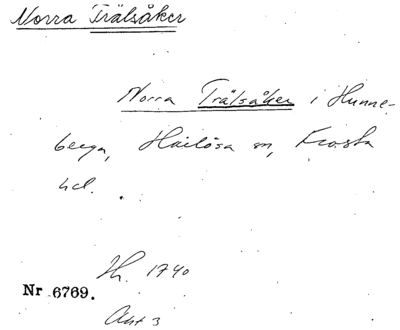 Norra Trälsåker
Norra Trälsåker i Hunne-
berga, Harlösa sn, Frosta
hd.
Lh. 1740
Nr 6769.
Akt 3